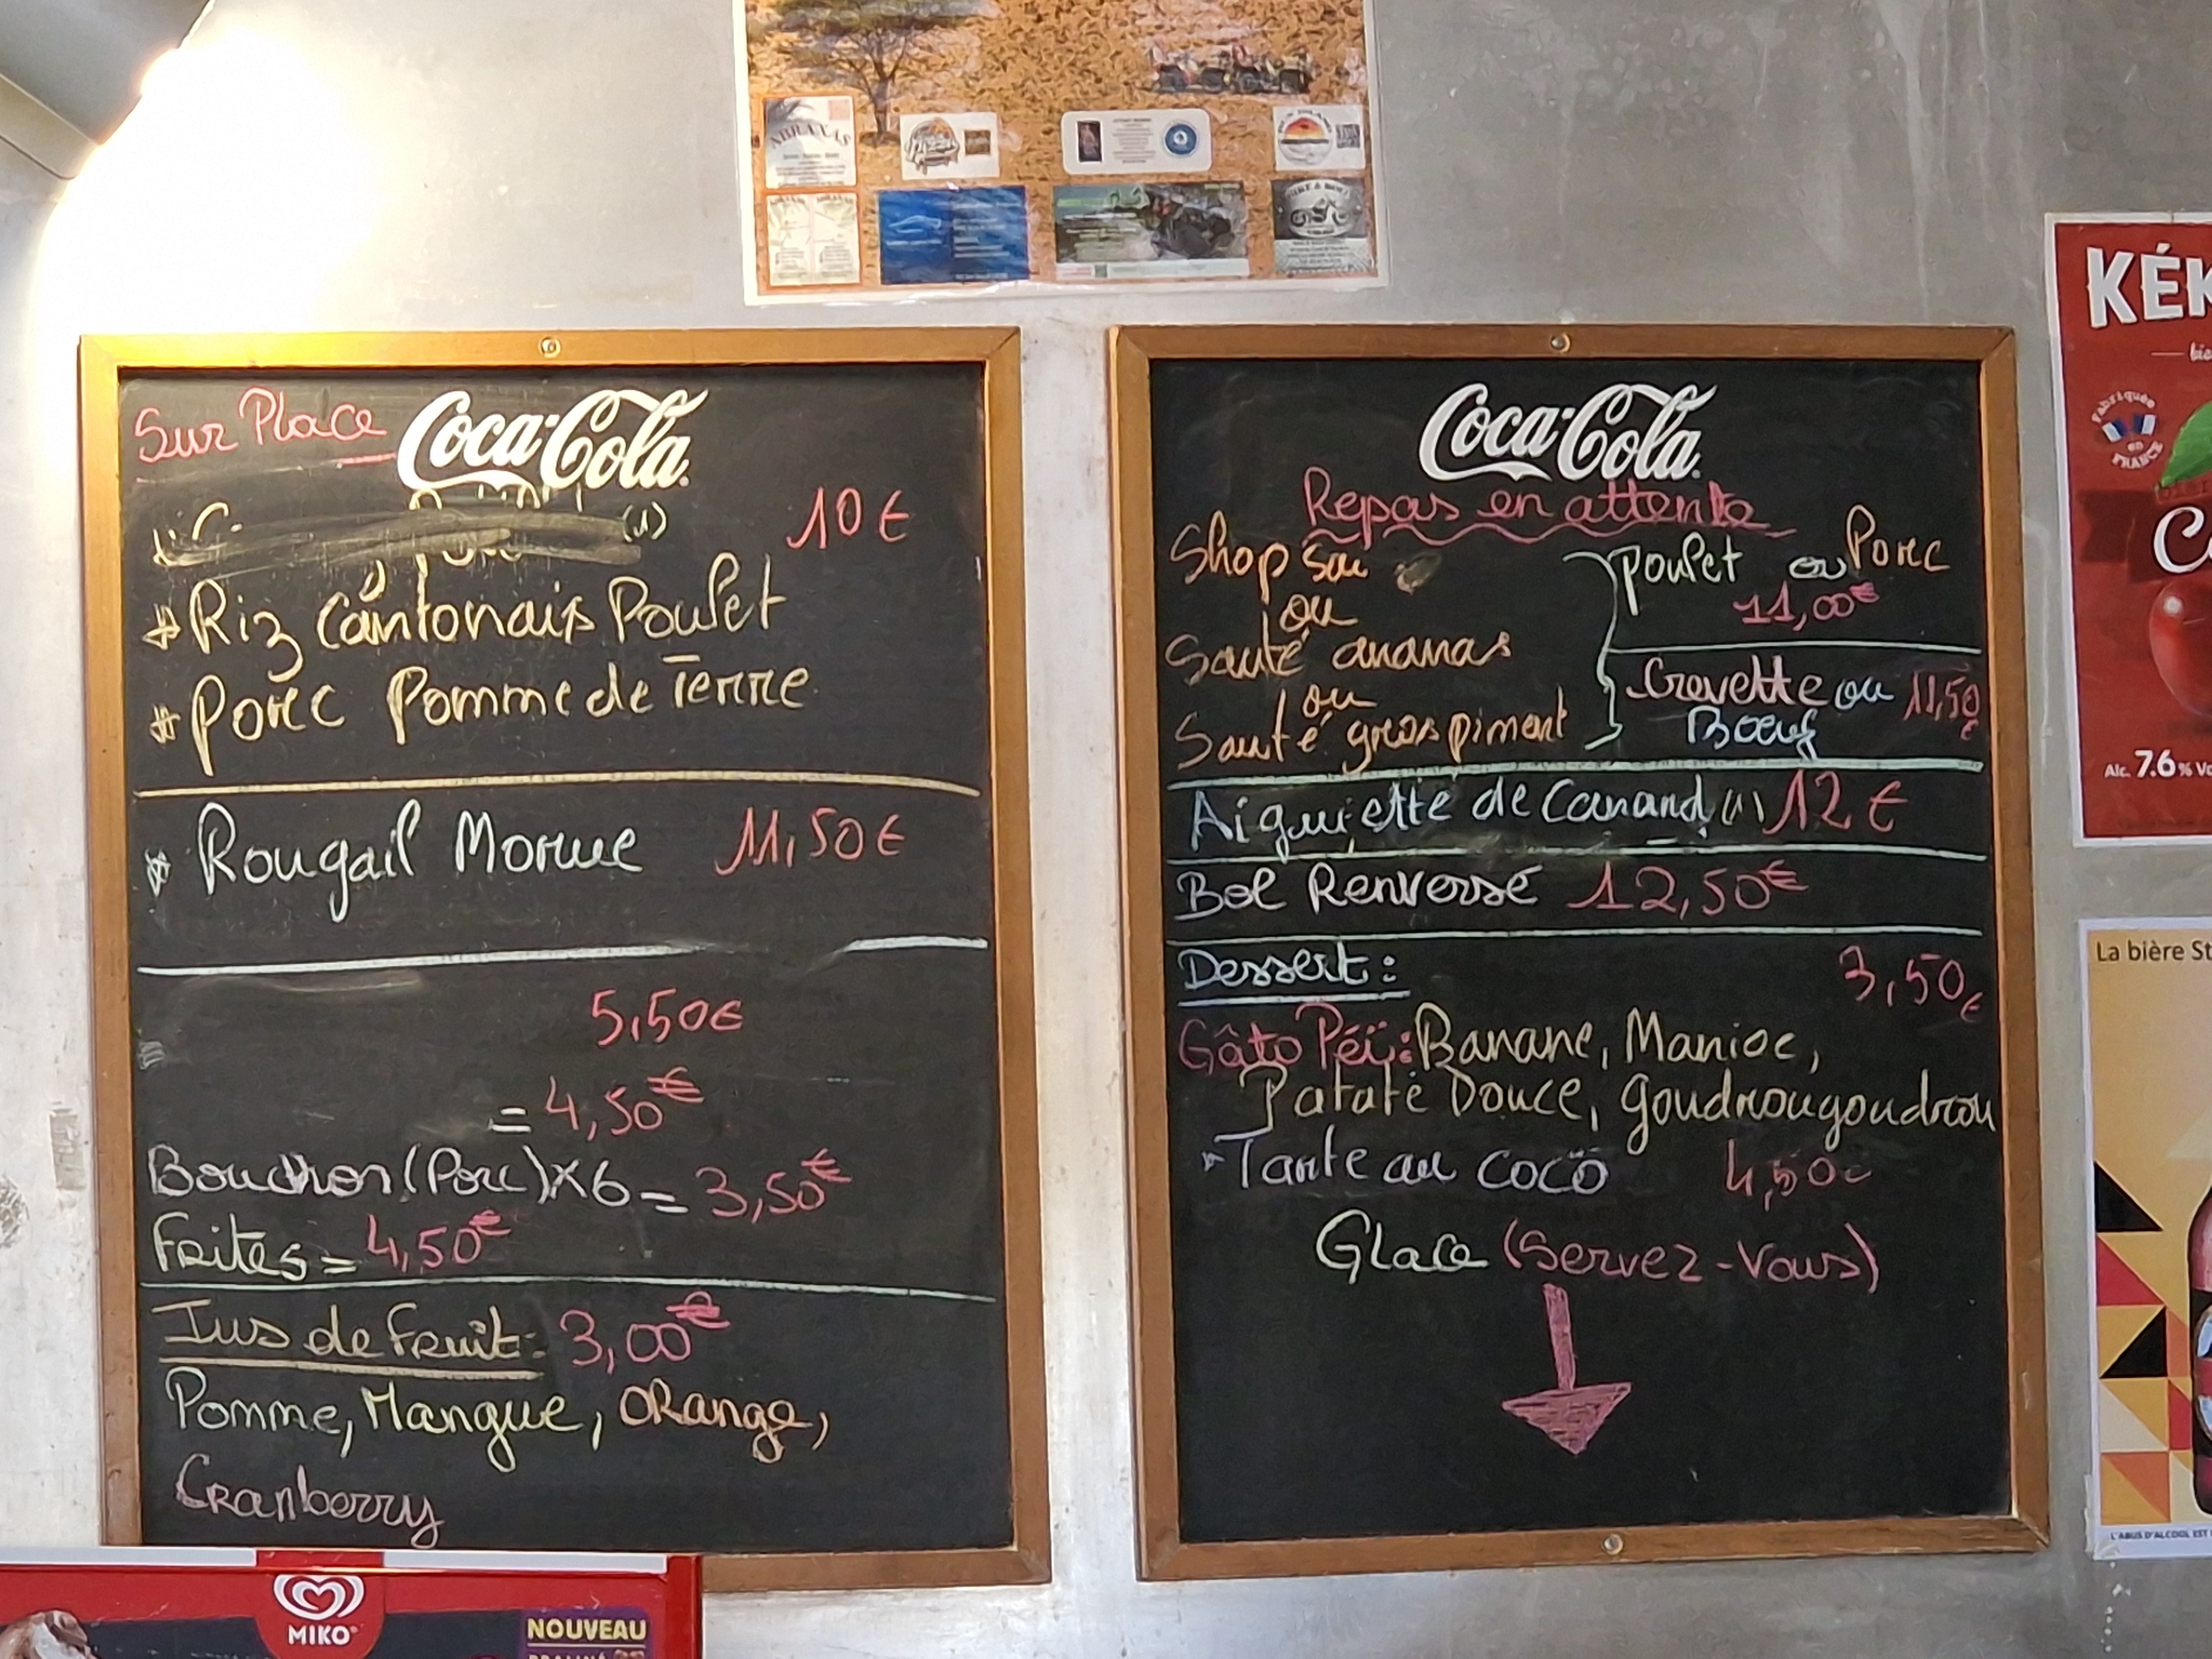 ABRAXAS
Sur Place
Coca-Cola
(1) 10 €
* Riz Cantonais Poulet
* Porc Pomme de Terre
* Rougail Morue 11,50 €
5,50€
= 4,50€
Bouchon (Porc) X6 = 3,50€
Frites = 4,50€
Jus de Fruit: 3,00€
Pomme, Mangue, Orange,
Cranberry
MIKO
NOUVEAU
Coca-Cola
Repas en attente
Shop Sui
ou
Sauté ananas
ou
Sauté gros piment
Poulet ou Porc
11,00€
Crevette ou 11,50
€
Boeuf
Aiguiette de Canard (1) 12 €
Bol Renversé 12,50€
Dessert: 3,50€
Gâto Péï: Banane, Manioc,
Patate Douce, goudrougoudrou
* Tarte au coco 4,50€
Glace (Servez-Vous)
KÉK
Fabriquée
en
FRANCE
Alc. 7.6% Vo
La bière St
L'ABUS D'ALCOOL EST